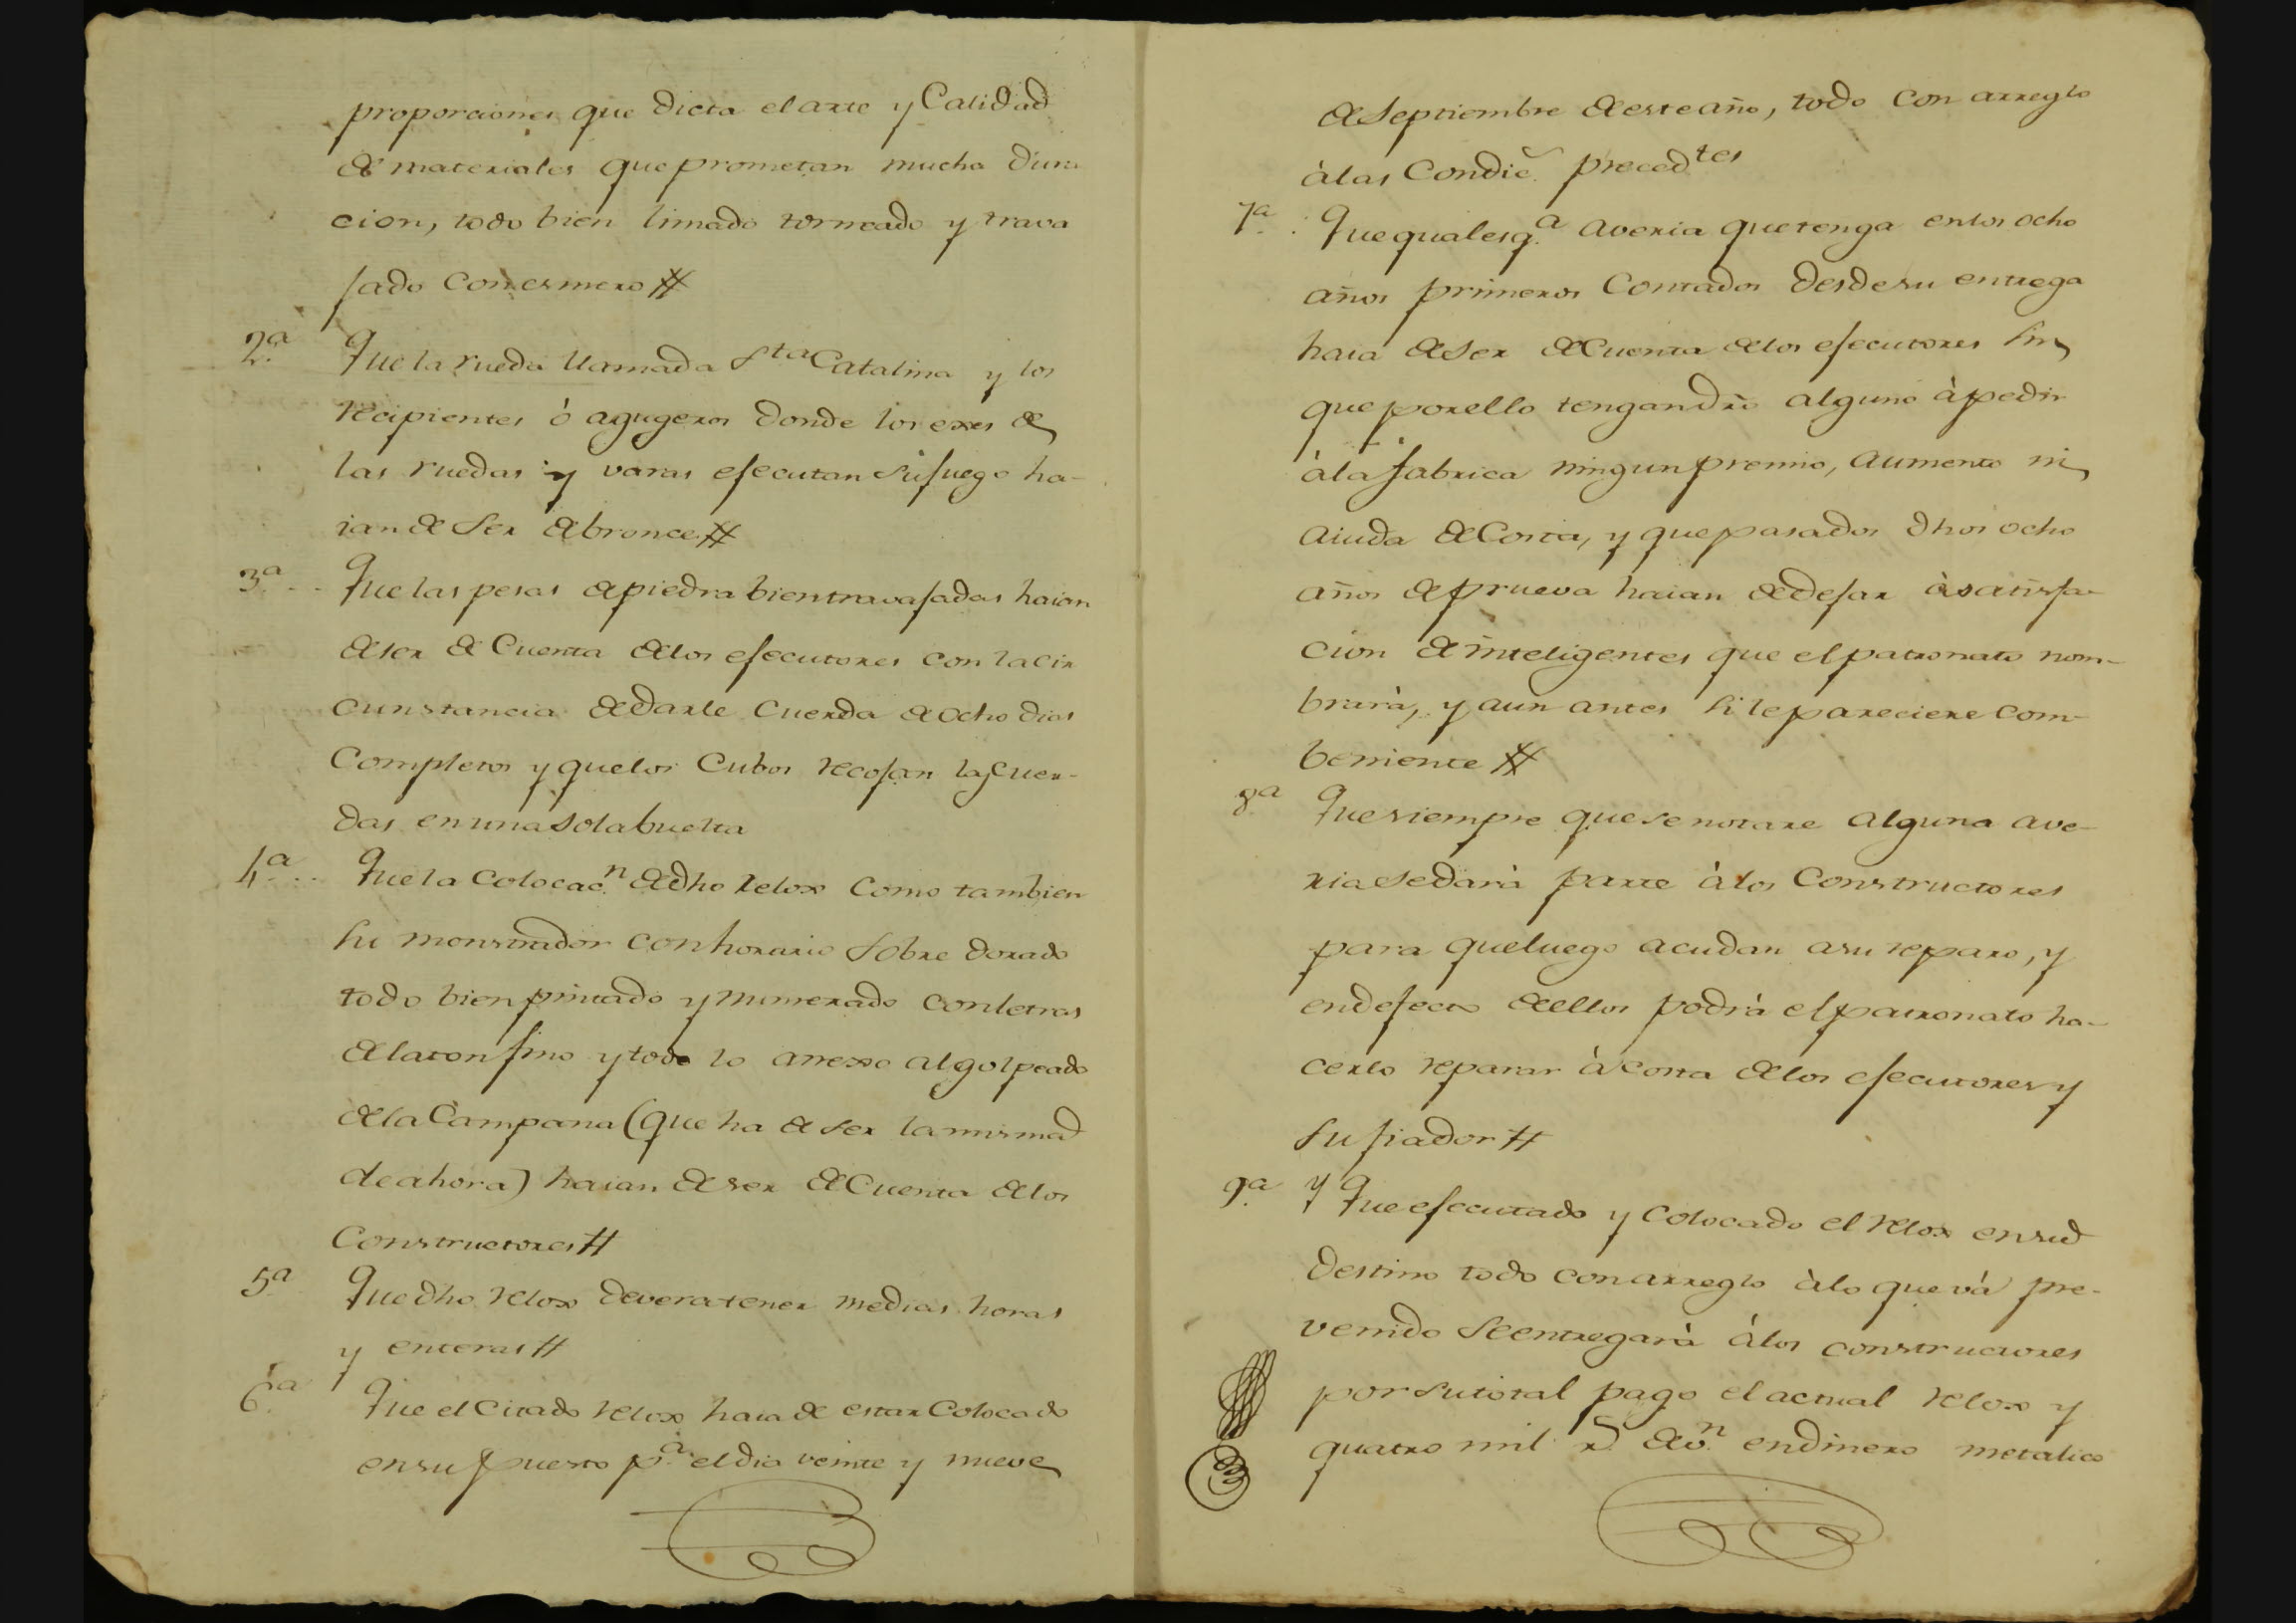 proporciones que dicta el arte y Calidad
de materiales que prometan mucha dura
cion, todo bien limado torneado y trava
jado con esmero #
2.ª Que la rueda llamada Sta Catalina y los
recipientes ò agugeros donde los exes de
las ruedas y varas ejecutan su juego ha-
ian de ser de bronce #
3.ª Que las pesas de piedra bien travajadas haian
de ser de Cuenta de los ejecutores con la cir
cunstancia de darle Cuerda de ocho dias
Completos y que los Cubos recojan las Cuer-
das en una sola buelta
4.ª Que la Colocac.n de dho Relox Como tambien
su monstrador con horario sobre dorado
todo bien pintado y numerado con letras
de laton fino y todo lo anexo al golpeado
de la Campana (que ha de ser la misma
de ahora) haian de ser de Cuenta de los
Constructores #
5.ª Que dho relox devera tener medias horas
y enteras #
6.ª Que el Citado relox haia de estar Colocado
en su puesto p.a el dia veinte y nueve
de Septiembre de este año, todo con arreglo
à las Condic. preced.tes
7.ª Que qualesq.a averia que tenga en los ocho
años primeros Contados desde su entrega
haia de ser de Cuenta de los ejecutores sin
que por ello tengan dro alguno à pedir
à la fabrica ningun premio, aumento ni
aiuda de Costa, y que pasados dhos ocho
años de prueva haian de dejar à satisfa-
cion de inteligentes que el patronato nom-
brarà, y aun antes si le pareciere com-
beniente #
8.ª Que siempre que se notare alguna ave-
ria se darà parte à los Constructores
para que luego acudan a su reparo, y
en defecto de ellos podrà el patronato ha-
cerlo reparar à costa de los ejecutores y
su fiador #
9.ª Y Que ejecutado y colocado el relox en su
destino todo con arreglo à lo que và pre-
venido se entregarà à los constructores
por su total pago el actual relox y
quatro mil r.s de v.n en dinero metalico